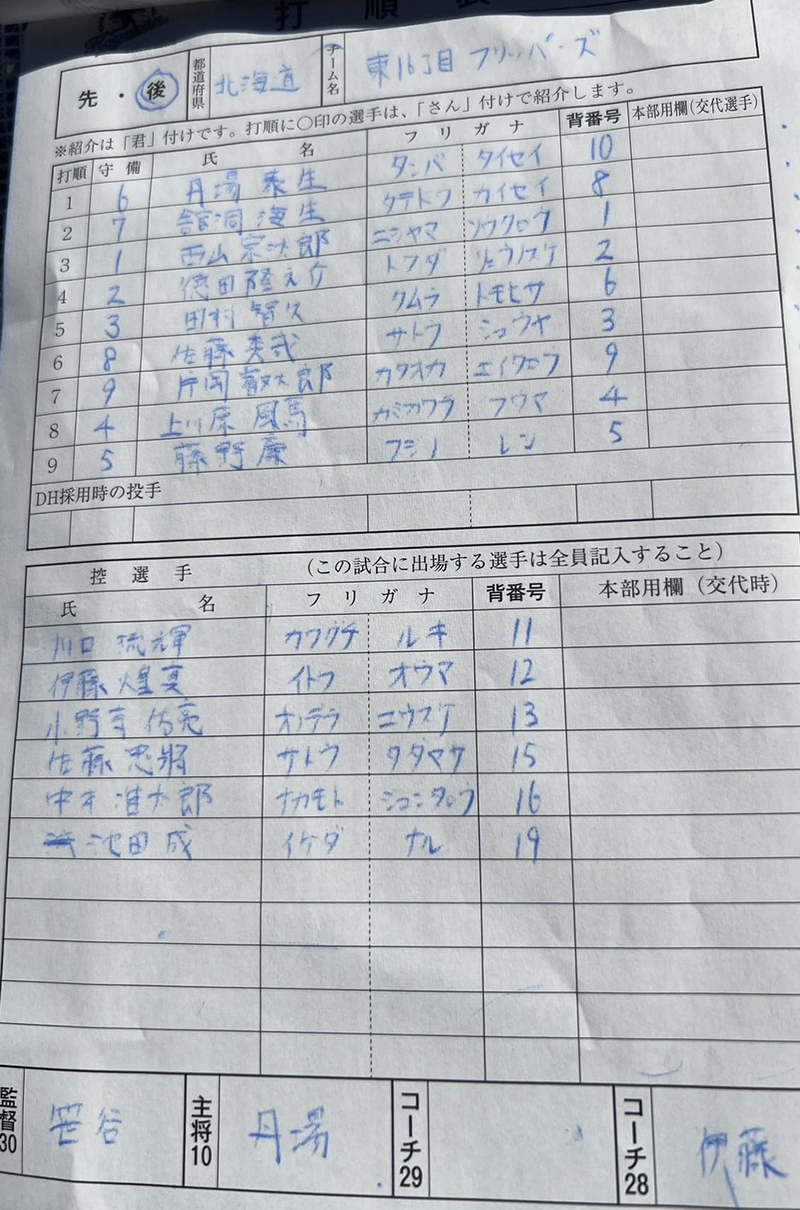 打順表
先・後 都道府県 北海道 チーム名 東16丁目フリッパーズ
※紹介は「君」付けです。打順に〇印の選手は、「さん」付けで紹介します。
打順 守備 氏名 フリガナ 背番号 本部用欄(交代選手)
1 6 丹場泰生 タンバ タイセイ 10
2 7 舘洞海生 タテドウ カイセイ 8
3 1 西山宗汰郎 ニシヤマ ソウタロウ 1
4 2 徳田隆之介 トクダ リュウノスケ 2
5 3 田村智久 タムラ トモヒサ 6
6 8 佐藤奨哉 サトウ ショウヤ 3
7 9 片岡叡太郎 カタオカ エイタロウ 9
8 4 上川原風馬 カミカワラ フウマ 4
9 5 藤野廉 フジノ レン 5
DH採用時の投手
控選手 (この試合に出場する選手は全員記入すること)
氏名 フリガナ 背番号 本部用欄(交代時)
川口琉輝 カワグチ ルキ 11
伊藤煌真 イトウ オウマ 12
小野寺佑亮 オノデラ ユウスケ 13
佐藤忠将 サトウ タダマサ 15
中本准太郎 ナカモト ジュンタロウ 16
池田成 イケダ ナル 19
監督30 笹谷 主将10 丹場 コーチ29 コーチ28 伊藤